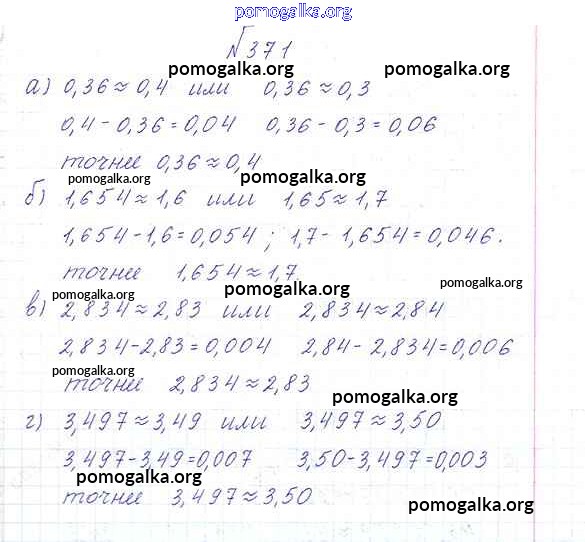 pomogalka.org
№371
pomogalka.org pomogalka.org
а) 0,36≈0,4 или 0,36≈0,3
0,4-0,36=0,04 0,36-0,3=0,06
точнее 0,36≈0,4
pomogalka.org pomogalka.org
б) 1,654≈1,6 или 1,65≈1,7
1,654-1,6=0,054; 1,7-1,654=0,046.
точнее 1,654≈1,7
pomogalka.org pomogalka.org pomogalka.org
в) 2,834≈2,83 или 2,834≈2,84
2,834-2,83=0,004 2,84-2,834=0,006
pomogalka.org
точнее 2,834≈2,83
pomogalka.org
г) 3,497≈3,49 или 3,497≈3,50
3,497-3,49=0,007 3,50-3,497=0,003
pomogalka.org
точнее 3,497≈3,50
pomogalka.org